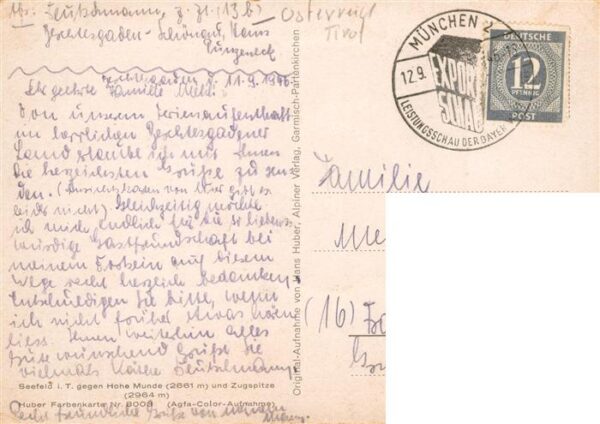 Abs: Deutschmann, z. Zt. (13b)
Berchtesgaden - Schönau, Haus
Österreich
Tirol
Berchtesgaden d. 11.9.1946.
Sehr geehrte Familie
Von unserem Ferienaufenthalt
im herrlichen Berchtesgadner
Land erlaube ich mir Ihnen
die herzlichsten Grüße zu sen-
den. (Ansichtskarten von hier gibt es
leider nicht). Gleichzeitig möchte
ich mich endlich für die so liebens-
würdige Gastfreundschaft bei
meinem Dortsein auf diesem
Wege recht herzlich bedanken.
Entschuldigen Sie bitte, wenn
ich nicht früher etwas hören
liess. Ihnen weiterhin alles
Gute wünschend Grüße Sie
vielmals Käthe Deutschmann
Seefeld i. T. gegen Hohe Munde (2661 m) und Zugspitze
(2964 m)
Huber Farbenkarte Nr. 8003 (Agfa-Color-Aufnahme)
Recht freundliche Grüße von meinem
Original-Aufnahme von Hans Huber, Alpiner Verlag, Garmisch-Partenkirchen
MÜNCHEN 2
12.9.
EXPORT
SCHAU
LEISTUNGSSCHAU DER BAYER
DEUTSCHE
12
PFENNIG
POST
Familie
Me
(16)